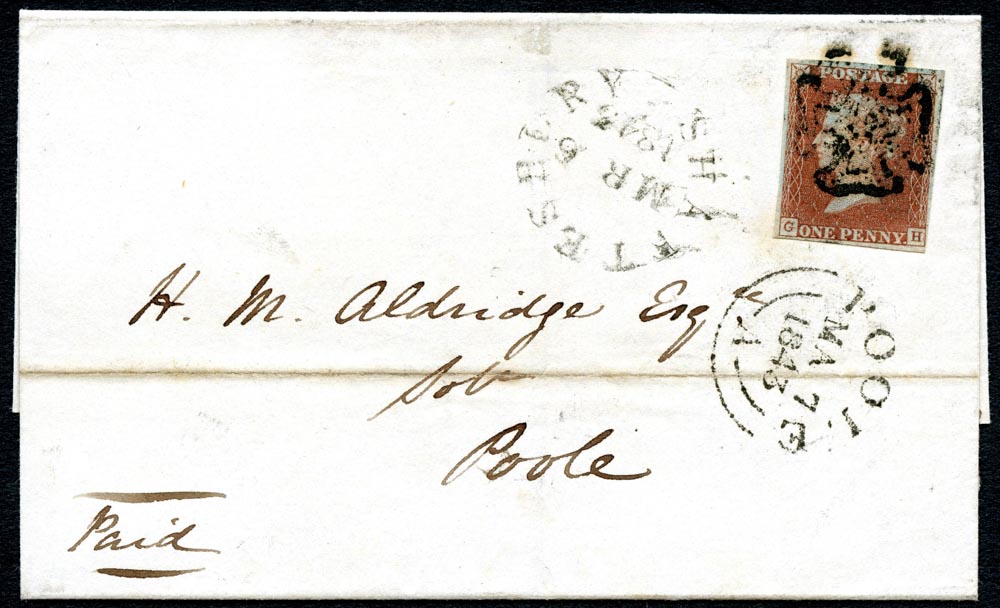 POSTAGE
G ONE PENNY. H
SHAFTESBURY
MR 6
1843
POOLE
MA 7
1843
A
H. M. Aldridge Esqre
Solr
Poole
Paid